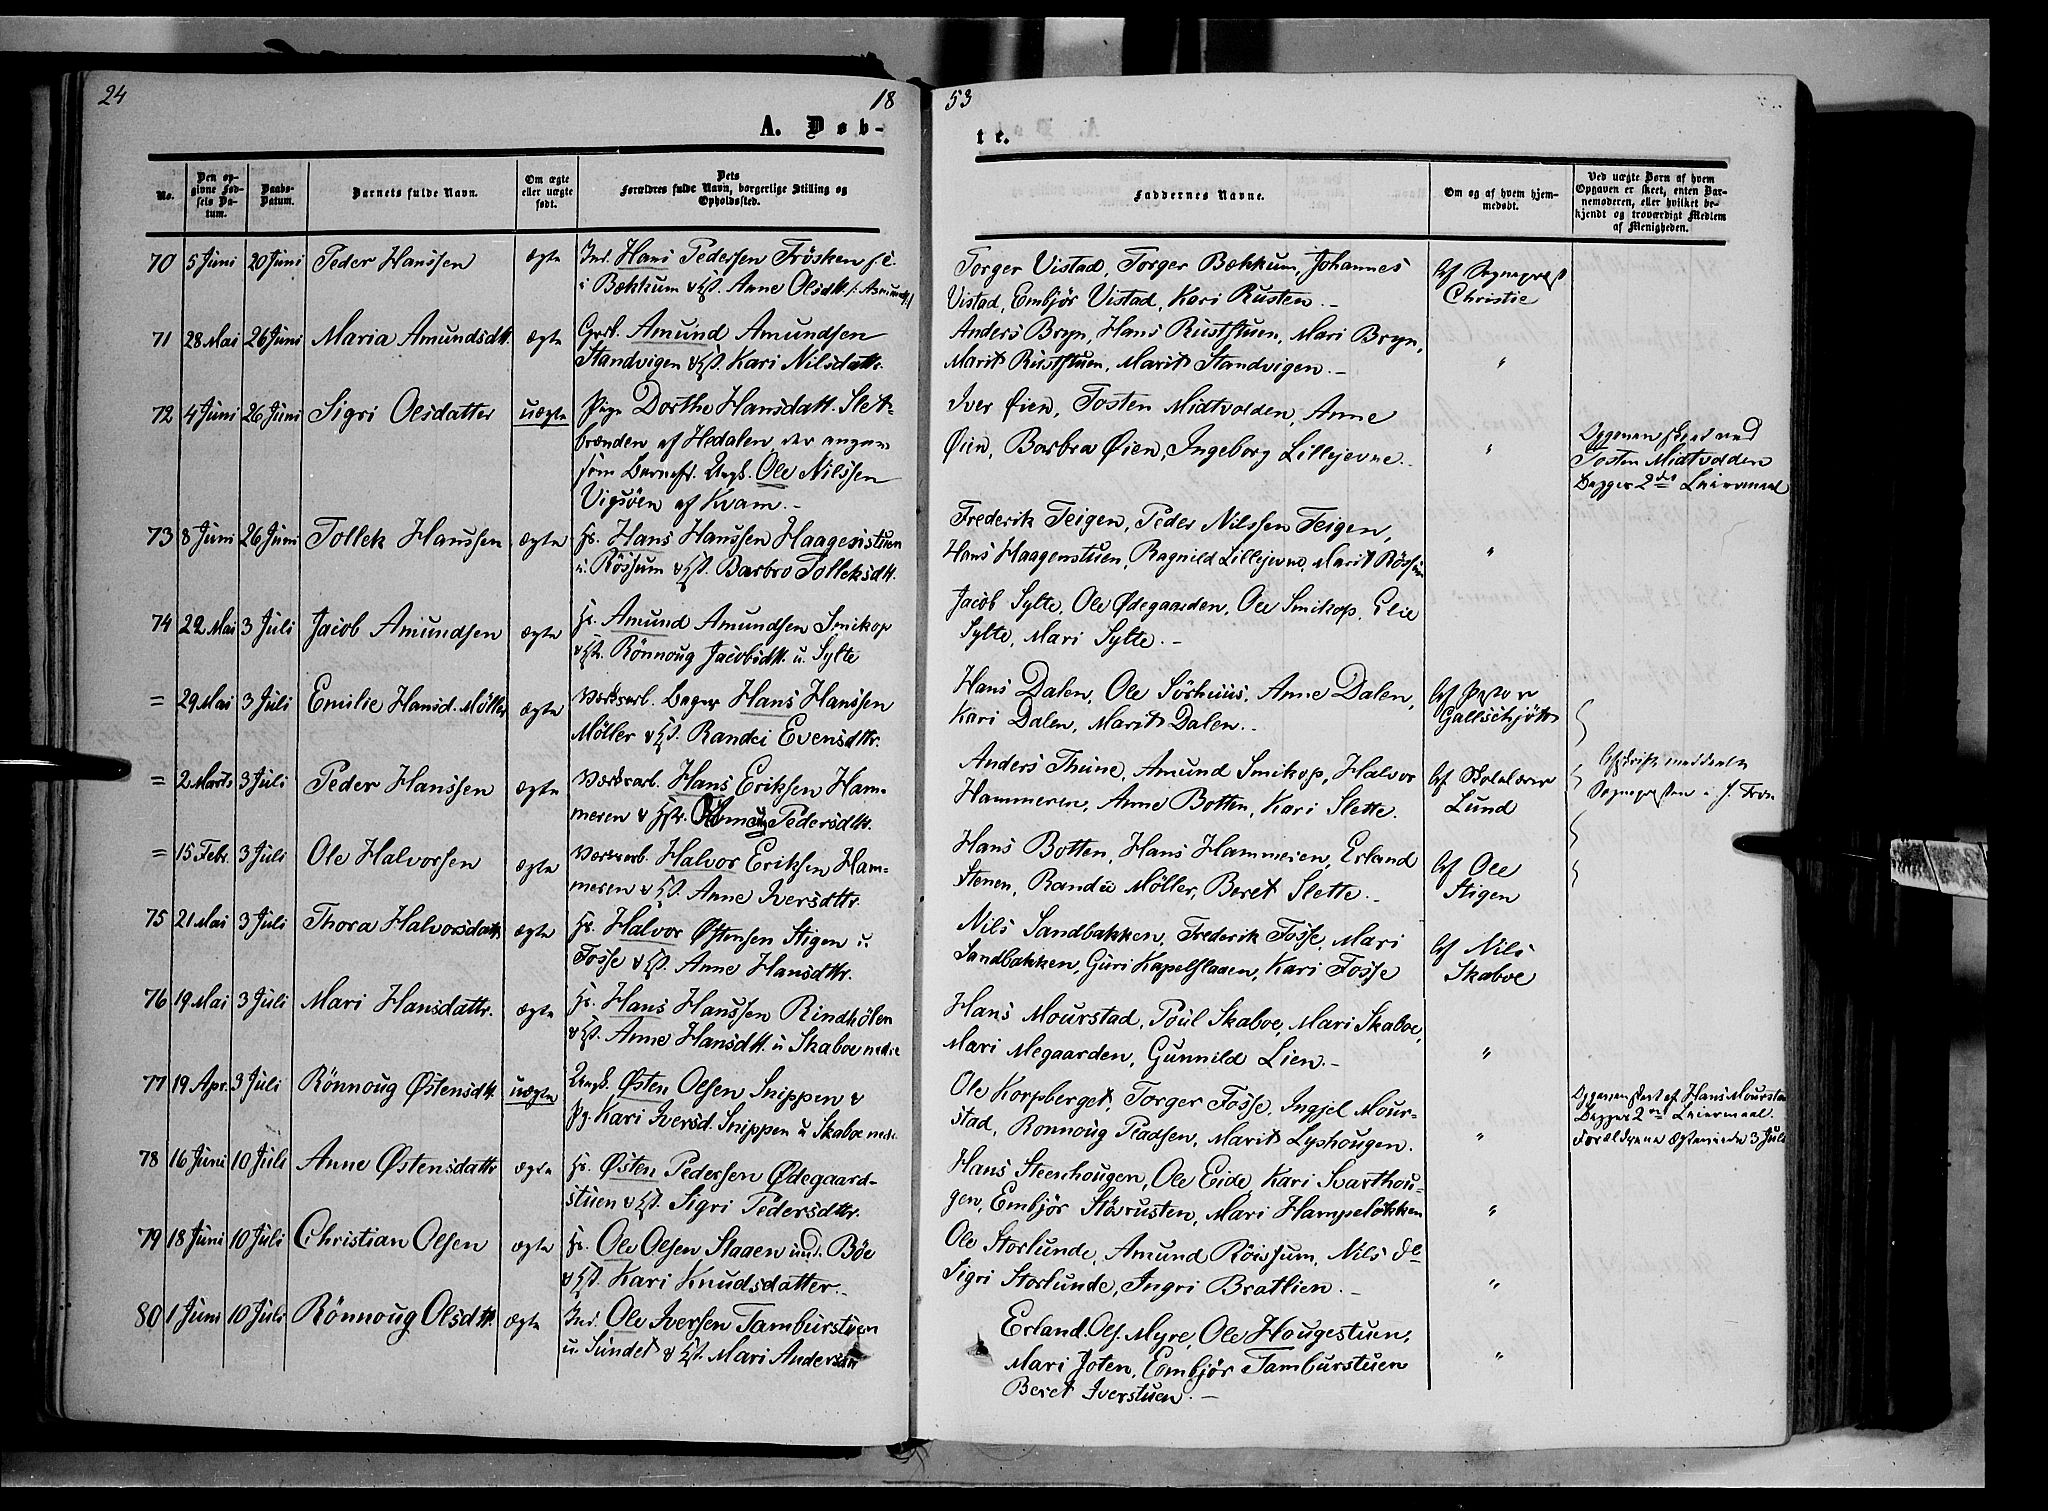 24
18
53
A. Døb-
te.
No.
Den op-
givne Fød-
sels Da-
tum.
Daabs-
Datum.
Barnets fulde Navn.
Om ægte
eller uægte
født.
Dets
Forældres fulde Navn, borgerlige Stilling og
Opholdssted.
Faddernes Navne.
Om og af hvem hjem-
medøbt.
Ved uægte Børn af hvem
Opgaven er skeet, enten Bar-
nemoderen, eller hvilket be-
kjendt og troværdigt Medlem
af Menigheden.
70 5 Juni 20 Juni Peder Hanssen ægte Ind. Hans Pedersen Frösken
i Bækkum & Hst. Anne Olsdtt.
Torger Vistad, Torger Bækkum, Johannes
Vistad, Embjör Vistad, Kari Rusten. -
Af Sognepræst
Christie
71 28 Mai 26 Juni Maria Amundsdtt. ægte Amund Amundsen
Standvigen & Hst. Kari Nilsdattr.
Anders Bryn, Hans Ruststuen, Mari Bryn,
Marit Ruststuen, Marit Standvigen. -
"
72 4 Juni 26 Juni Sigri Olsdatter uægte Pige Dorthe Hansdatt. Slet-
brænden af Hedalen der angav
som Barnefr. Ungk. Ole Nilssen
Vigsöen af Kvam. -
Iver Øien, Tosten Midtvolden, Anne
Øien, Barbra Øien, Ingeborg Lillejevne. -
"
Opgaven skeet ved
Tosten Midtvolden
Begges 2det Leiermaal
73 8 Juni 26 Juni Tollek Hanssen ægte Hs. Hans Hanssen Haagenstuen
u. Rössum & Hst. Barbro Tolleksdtt.
Frederik Teigen, Peder Nilssen Teigen,
Hans Haagenstuen, Ragnild Lillejevne, Marit Rössum
"
74 22 Mai 3 Juli Jacob Amundsen ægte Hs. Amund Amundsen Smikop
& Hst. Rönnoug Jacobsdtt. u. Sylte
Jacob Sylte, Ole Ødegaarden, Ole Smikop, Elie
Sylte, Mari Sylte. -
= 29 Mai 3 Juli Emilie Hansd. Möller ægte Værksarb. Bager Hans Hanssen
Möller & Hst. Randei Evensdttr.
Hans Dalen, Ole Sörhuus, Anne Dalen,
Kari Dalen, Marit Dalen. -
Af Pastor
Gallschjöt
= 2 Marts 3 Juli Peder Hanssen ægte Værksarb. Hans Eriksen Ham-
meren & Hst. Pedersdttr.
Anders Thune, Amund Smikop, Halvor
Hammeren, Anne Botten, Kari Slette.
Af Skolelærer
Lund
Afskrift meddeelt
Sognepræsten i S. Fron
= 15 Febr. 3 Juli Ole Halvorsen ægte Værksarb. Halvor Eriksen Ham-
meren & Hst. Anne Iversdttr.
Hans Botten, Hans Hammeren, Erland
Stenen, Randei Möller, Beret Slette. -
Af Ole
Stigen
75 21 Mai 3 Juli Thora Halvorsdattr ægte Hs. Halvor Østensen Stigen u
Fosse & Hst. Anne Hansdttr.
Nils Sandbakken, Frederik Fosse, Mari
Sandbakken, Guri Kapelslaaen, Kari Fosse
Af Nils
Skaboe
76 19 Mai 3 Juli Mari Hansdattr. ægte Hs. Hans Hanssen Rindhölen
& Hst. Anne Hansdtt. u Skaboe nedre
Hans Mourstad, Poul Skaboe, Mari Skaboe,
Mari Megaarden, Gunnild Lien. -
"
77 19 Apr. 3 Juli Rönnoug Østensdtt. uægte Ungk. Østen Olsen Snippen &
Pg. Kari Iversd. Snippen u Skaboe nedr.
Ole Korpberget, Torger Fosse, Ingjel Mour-
stad, Ronnoug Pladsen, Marit Lyshougen.
"
Opgaven skeet af Hans Mourstad
Begges 2det Leiermaal.
Forældrene ægteviede 3 Juli
78 16 Juni 10 Juli Anne Østensdattr ægte Hs. Østen Pedersen Ødegaard-
stuen & Hst. Sigri Pedersdttr.
Hans Steenhougen, Ole Eide, Kari Svarthou-
gen, Embjör Störusten, Mari Hampelökken
"
79 18 Juni 10 Juli Christian Olsen ægte Hs. Ole Olsen Slaaen und. Böe
& Hst. Kari Knudsdatter. -
Ole Storlunde, Amund Röissum, Nils do
Sigri Storlunde, Ingri Bratlien. -
"
80 1 Juni 10 Juli Rönnoug Olsdtt. ægte Ind. Ole Iversen Tamburstuen
u. Sundet & Hst. Mari Andersdtr
Erland Ols. Myre, Ole Hougestuen,
Mari Joten, Embjör Tamburstuen
Beret Iverstuen. -
"